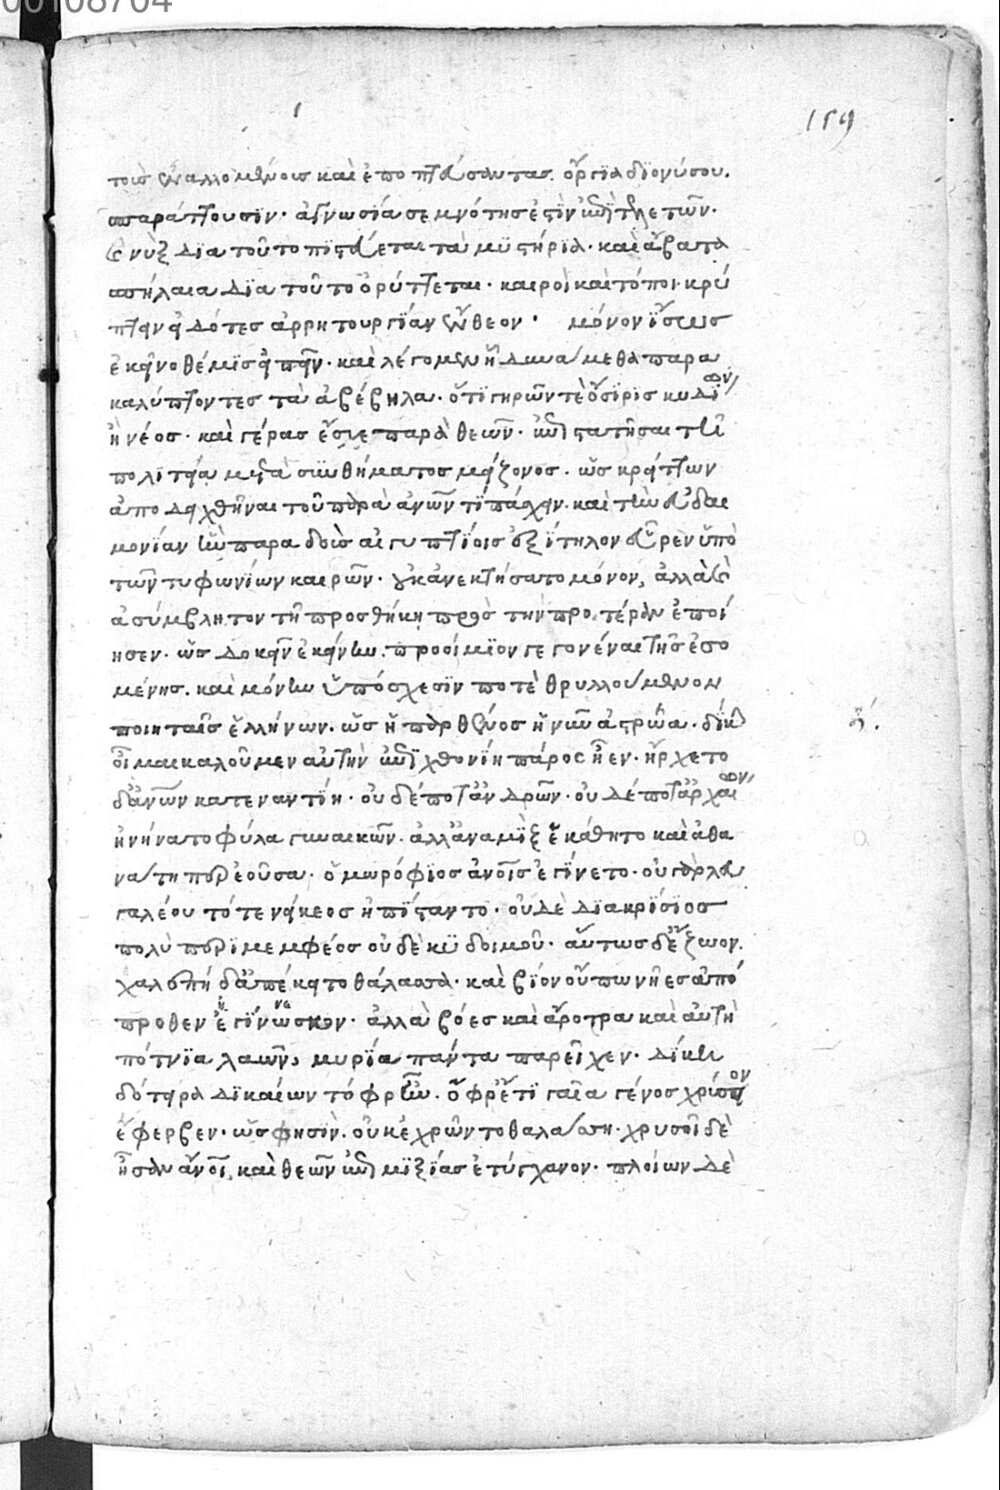 00108704
159
τοῖς ἐναλλομένοις καὶ ἐποπτεύσαντας ὄργια διονύσου.
σπαράττουσιν· ἀγνωσία σεμνότης ἐστὶν ἐπὶ τελετῶν·
καὶ νὺξ διατοῦτο πιστεύεται τὰ μυστήρια· καὶ ἄβατα
σπήλαια διατοῦτο ὀρύττεται· καιροὶ καὶ τόποι κρύ
πτειν εἰδότες ἀρρητουργίαν ἔνθεον· μόνον ἴσως
ἐκεῖνο θέμις εἰπεῖν· καὶ λέγομεν ᾗ δυνάμεθα παρα
καλύπτοντες τὰ ἀβέβηλα· ὅτι γηρῶν τε ὄσιρις
ἢ νέος· καὶ γέρας παρὰ θεῶν· ἐπιστατῆσαι τῇ
πολιτείᾳ μετὰ συνθήματος μείζονος· ὡς κρείττων
ἀποδειχθῆναι τοῦ παρὰ ἀνῶν τι πάσχειν· καὶ τὴν εὐδαι
μονίαν ἣν παρα δοὺς αἰγυπτίοις ἐξίτηλον εὗρεν ὑπὸ
τῶν τυφωνίων καιρῶν· οὐκ ἀνεκτήσατο μόνον, ἀλλὰ καὶ
ἀσύμβλητον τῇ προσθήκῃ πρὸς τὴν προτέραν ἐποί
ησεν· ὡς δοκεῖν ἐκείνην προοίμιον γεγονέναι τῆς ἐσο
μένης· καὶ μόνην ὑπόσχεσιν ποτὲ θρυλλουμένον
ποιηταῖς ἑλλήνων· ὡς ἡ παρθένος ἣ νῦν ἀστρώα· δίκη
οἶμαι καλοῦμεν αὐτὴν ἐπιχθονίη πάρος ἦεν· ἤρχετο
δἀνῶν κατεναντίη· οὐδέποτ ἀνδρῶν· οὐδέποτ ἀρχαίων
ἠνήνατο φύλα γυναικῶν· ἀλλἀναμὶξ ἐκάθητο καὶ ἀθα
νάτη περ ἐοῦσα· ὁμωρόφιος ἀνοῖς ἐγίνετο· οὔπω λευ
γαλέου τότε νείκεος ἠπίσταντο· οὐδὲ διακρίσιος
πολὺ περιμεμφέος οὐδὲ κυδοιμοῦ· αὔτως δἔζωον.
χαλεπὴ δἀπέκειτο θάλασσα· καὶ βίον οὔπω νῆες ἀπό
προθεν ἐγίνωσκον· ἀλλὰ βόες καὶ ἄροτρα καὶ αὐτὴ
πότνια λαῶν, μυρία πάντα παρεῖχεν· δίκη
δότειρα δικαίων τόφρ ἦν· ὄφρἔτι γαῖα γένος χρύσειον
ἔφερβεν· ὥς φησιν· οὐκ ἐχρῶντο θαλάσσῃ· χρυσοῖ δὲ
ἦσαν ἄνοι, καὶ θεῶν ἐπιμιξίας ἐτύγχανον· πλοίων δὲ